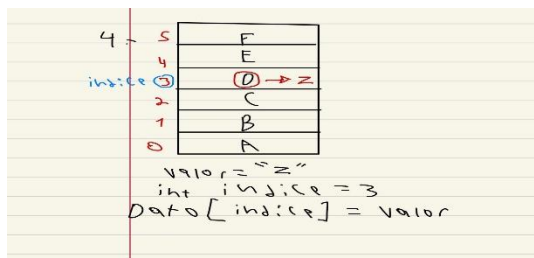 4.- 5 F
4 E
indice 3 D → Z
2 C
1 B
0 A
valor = "Z"
int indice = 3
Dato[indice] = valor